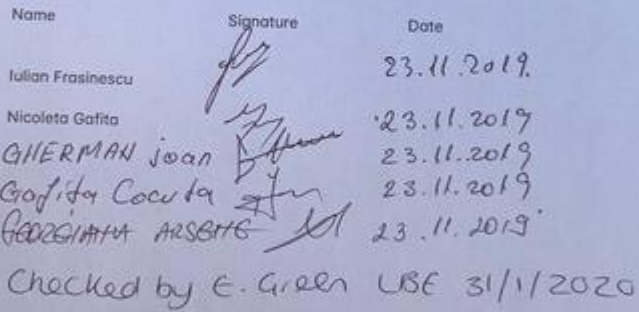 Name Signature Date
Iulian Frasinescu 23.11.2019.
Nicoleta Gafita 23.11.2019
GHERMAN ioan 23.11.2019
Gafita Cocuta 23.11.2019
GEORGIANA ARSENE 23.11.2019
Checked by E. Green LBE 31/1/2020